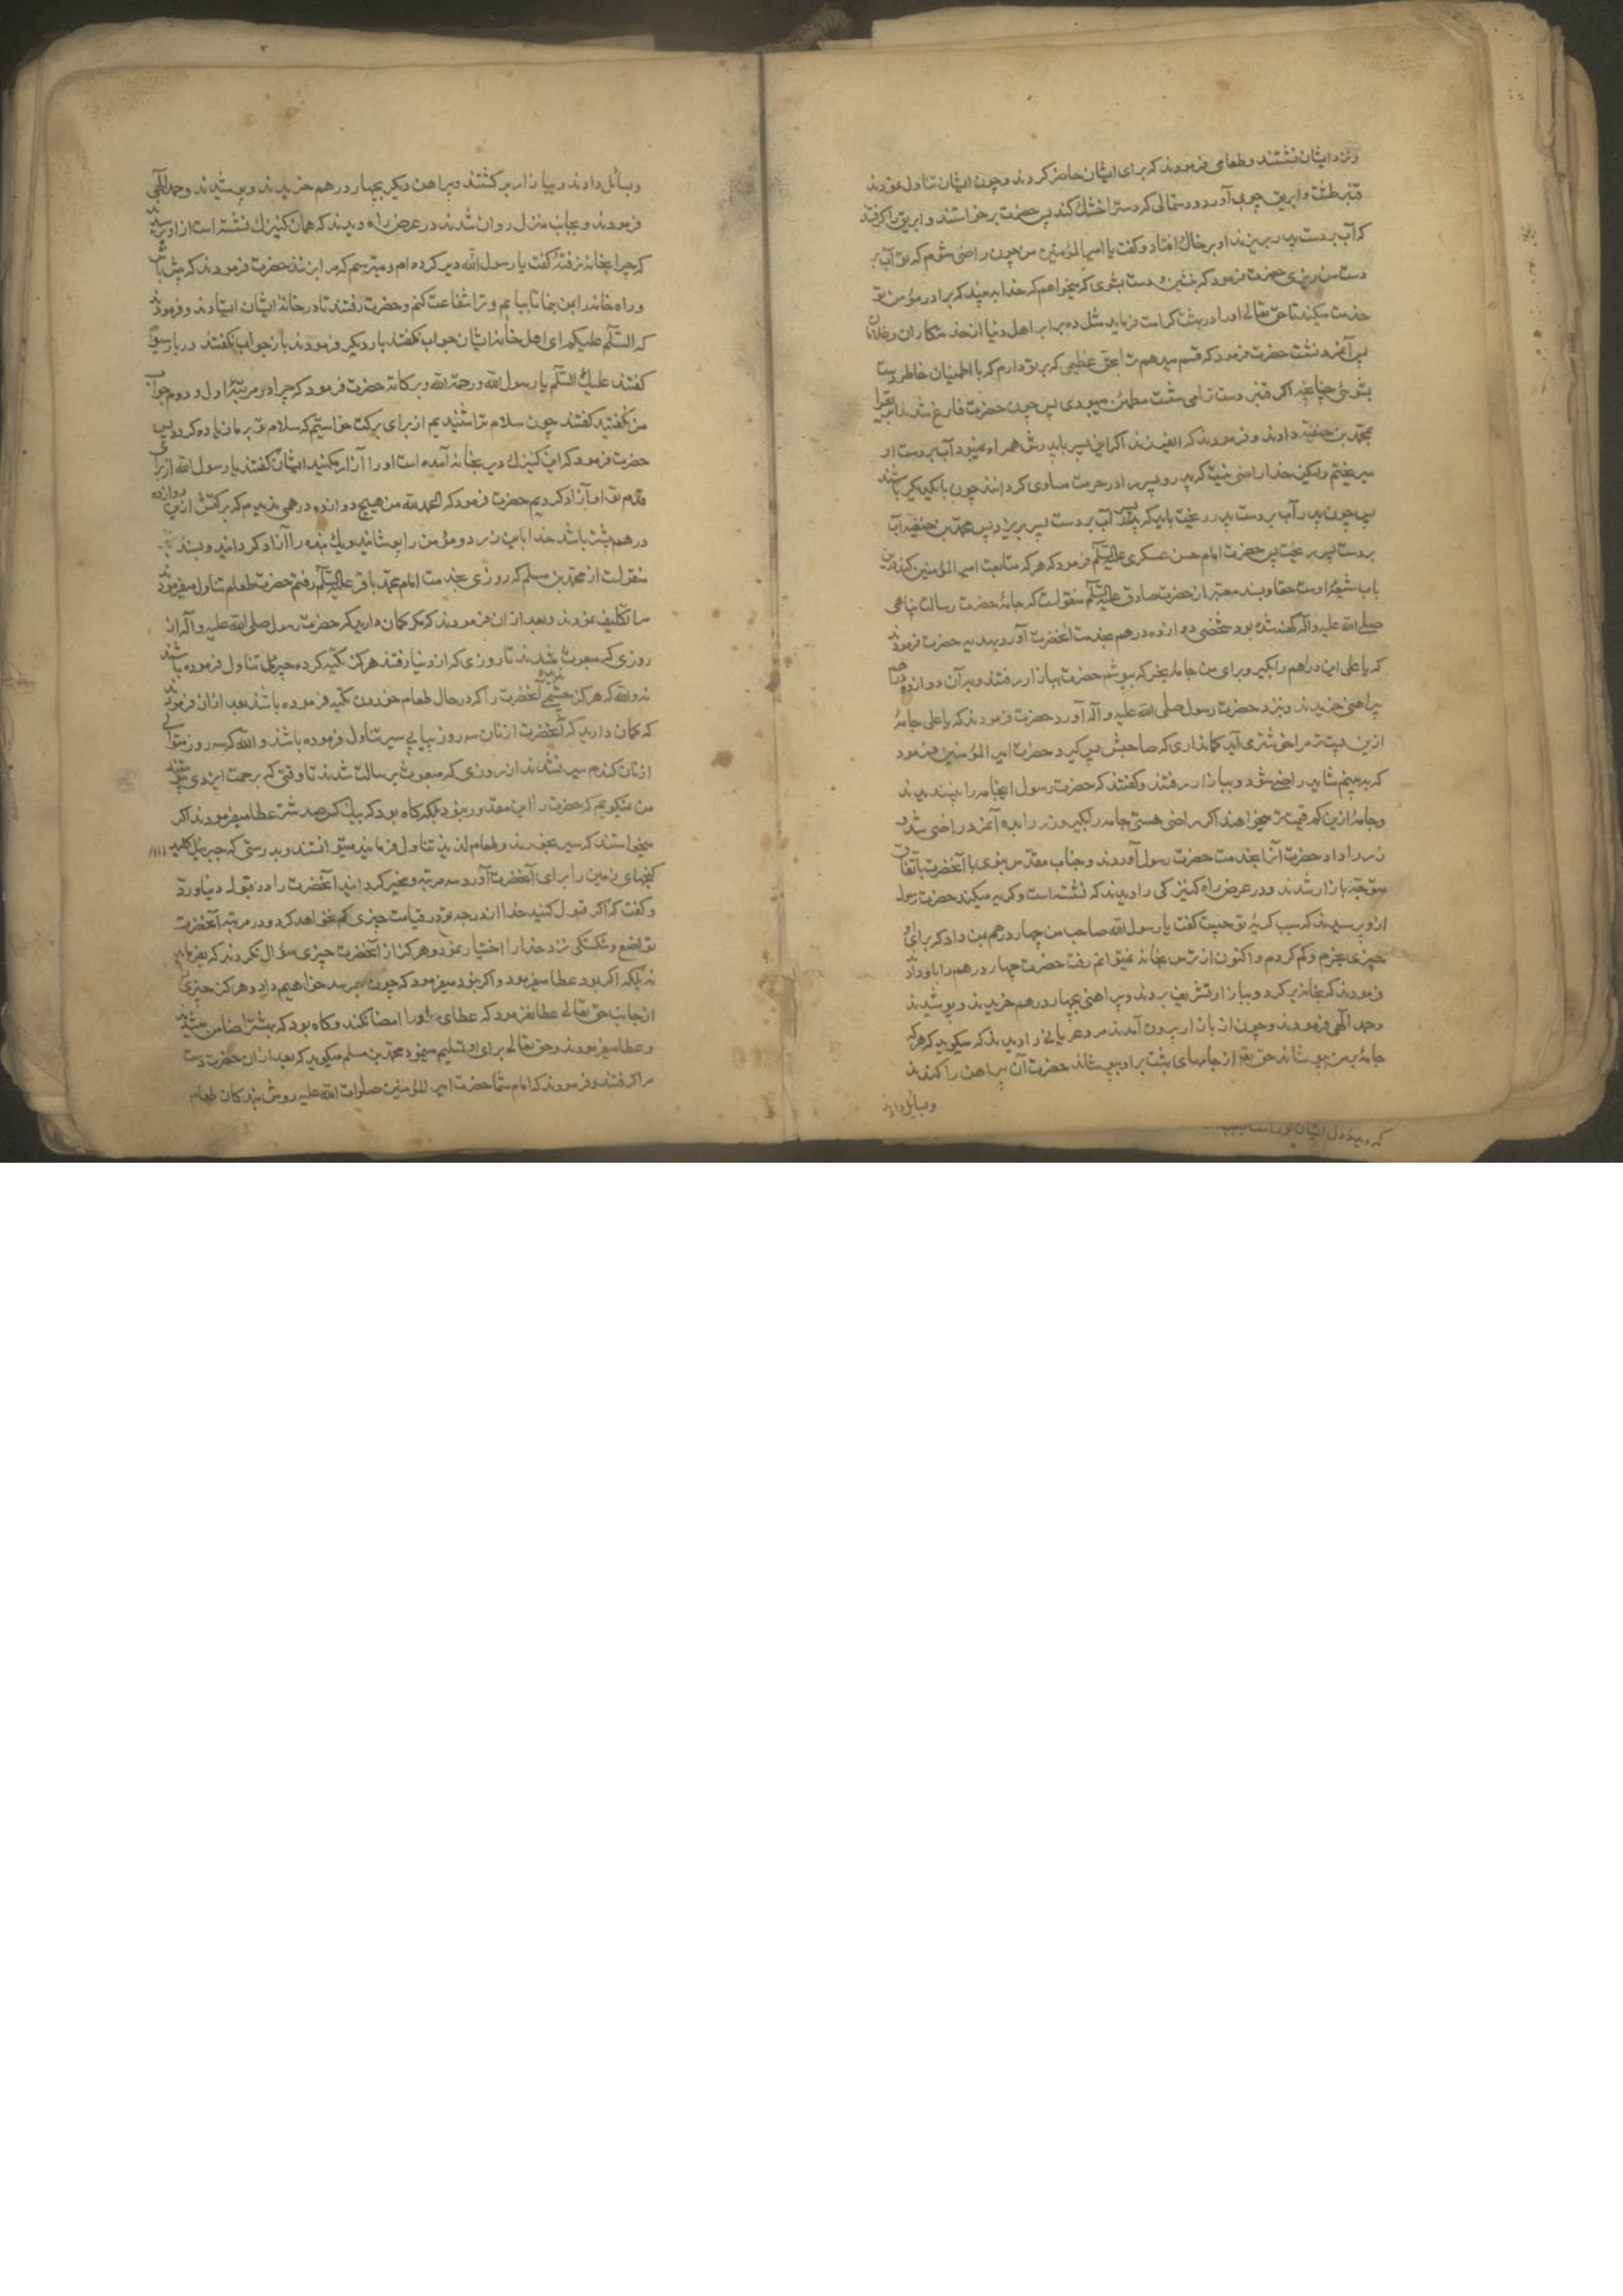 ونزد ایشان نشستند وطعامی فرمودند که برای ایشان حاضر کردند وچون ایشان تناول نمودند
قنبر طشت وابریق چوب آورد ودستمالی که دست را خشک کند پس حضرت برخواستند وابریق را گرفتند
که آب بر دست پدر بریزند او بر خاک افتاد وگفت یا امیرالمؤمنین من چون راضی شوم که تو آب بر
دست من ریزی حضرت فرمود که بنشین ودست بشوی که میخواهم که خدا به بیند که برادر مؤمن تو
خدمت میکند تا حق تعالی او را در بهشت کرامت فرماید مثل ده برابر اهل دنیا از خدمتکاران وغلامان
پس آنمرد نشست حضرت فرمود که قسم میدهم ترا بحق عظیمی که بر تو دارم که با اطمینان خاطر دست
بشوئی چنانچه اگر قنبر دست ترا می شست مطمئن میبودی پس چون حضرت فارغ شدند ابریق را
بمحمد بن حنفیه دادند وفرمودند که ایفرزند اگر این پسر با پدرش همراه نمیبود آب بر دست او
میریختم ولیکن خدا راضی نیست که پدر وپسر را در حرمت مساوی گردانند چون با یکدیگر باشند
پس چون پدر آب بر دست پدر ریخت باید که پسر آب بر دست پسر بریزد پس محمد بن حنفیه آب
بر دست پسر ریخت پس حضرت امام حسن عسکری علیه السلام فرمود که هر که متابعت امیرالمؤمنین کند درین
باب شیعهٔ اوست حقا وبسند معتبر از حضرت صادق علیه السلام منقولست که جامهٔ حضرت رسالت پناهی
صلی الله علیه وآله کهنه شده بود شخصی دوازده درهم بخدمت آنحضرت آورد بهدیه حضرت فرمودند
که یا علی این دراهم را بگیر وبرای من جامه بخر که بپوشم حضرت ببازار رفتند وبه آن دوازده
پیراهنی خریدند وبنزد حضرت رسول صلی الله علیه وآله آورد حضرت فرمودند که یا علی جامهٔ
ازین پست تر مرا خوشتر می آید گمان داری که صاحبش پس گیرد حضرت امیرالمؤمنین فرمود
که به بینم شاید راضی شود وببازار رفتند وگفتند که حضرت رسول اینجامه را نپسندیدند
وجامهٔ ازین کم قیمت تر میخواهند اگر راضی هستی جامه را بگیر وزر را بده آنمرد راضی شد و
زر را داد حضرت آنرا بخدمت حضرت رسول آوردند وجناب مقدس نبوی با آنحضرت باتفاق
متوجه بازار شدند ودر عرض راه کنیزکی را دیدند که نشسته است وگریه میکند حضرت رسول
ازو پرسیدند که سبب گریهٔ تو چیست گفت یا رسول الله صاحب من چهار درهم بمن داد که برای او
چیزی بخرم وگم کردم واکنون از ترس بخانه نمیتوانم رفت حضرت چهار درهم را باو دادند
فرمودند که بخانه برگرد وببازار تشریف بردند وپیراهنی بچهار درهم خریدند وپوشیدند
وحمد الهی فرمودند وچون از بازار بیرون آمدند مرد عریانی را دیدند که میگوید که هر که
جامه بمن بپوشاند حق تعالی از جامهای بهشت بر او بپوشاند حضرت آن پیراهن را کندند
وبسایل دادند
وبسائل دادند وببازار برگشتند وپیراهن دیگر بچهار درهم خریدند وپوشیدند وحمد الهی
فرمودند وبجانب منزل روان شدند در عرض راه دیدند که همان کنیزک نشسته است از او پرسیدند
که چرا بخانه نرفتهٔ گفت یا رسول الله دیر کرده ام ومیترسم که مرا بزنند حضرت فرمودند که پیش باش
وراه خانه را بمن بنما تا بیایم وترا شفاعت کنم وحضرت رفتند تا در خانهٔ ایشان ایستادند وفرمودند
که السلام علیکم ای اهل خانه ایشان جواب نگفتند بار دیگر فرمودند باز جواب نگفتند در بار سیم
گفتند علیک السلام یا رسول الله ورحمة الله وبرکاته حضرت فرمود که چرا در مرتبهٔ اول ودوم جواب
من نگفتید گفتند چون سلام ترا شنیدیم از برای برکت خواستیم که سلام تو بر ما زیاده گردد پس
حضرت فرمود که این کنیزک دیر بخانه آمده است او را آزار مکنید ایشان گفتند یا رسول الله از برای
قدم تو او را آزاد کردیم حضرت فرمود که الحمد لله من هیچ دوازده درهمی ندیدم که برکتش ازین دوازده
درهم بیشتر باشد خدا باین زر دو مؤمن را پوشانید ویک بنده را آزاد گردانید وبسند
منقولست از محمد بن مسلم که روزی بخدمت امام محمد باقر علیه السلام رفتم حضرت طعام تناول میفرمودند
مرا تکلیف نمودند وبعد از ان فرمودند که مگر گمان دارید که حضرت رسول صلی الله علیه وآله از
روزی که مبعوث شدند تا روزی که از دنیا رفتند هرگز تکیه کرده چیزی تناول فرموده باشند
نه والله که هرگز چشمی آنحضرت را که در حال طعام خوردن تکیه فرموده باشد بعد ازان فرمودند
که گمان دارید که آنحضرت از نان سه روز پیاپی سیر تناول فرموده باشد والله که سه روز متوالی
از نان گندم سیر نشدند از روزی که مبعوث برسالت شدند تا وقتی که برحمت ایزدی
من نمیگویم که حضرت را این مقدور نبود بلکه گاه بود که بیک کس صد شتر عطا میفرمودند اگر
میخواستند که سیر بخورند وطعام لذیذ تناول فرمایند میتوانستند وبدرستی که جبرئیل کلید
گنجهای زمین را برای آنحضرت آورد سه مرتبه ومخیر گردانید آنحضرت را در قبول دنیا ورد
وگفت که اگر قبول کنید خدا از درجهٔ تو در قیامت چیزی کم نخواهد کرد ودر مرتبه آنحضرت
تواضع وشکستگی نزد خدا را اختیار نمود وهرگز از آنحضرت چیزی سؤال نکردند که بفرماید
نه بلکه اگر بود عطا میفرمود واگر نبود میفرمود که چون بهم رسد خواهیم داد وهرگز چیزی
از جانب حق تعالی عطا نفرمود که عطای او را امضا نکند وگاه بود که بهشت را ضامن میشدند
وعطا میفرمودند وحق تعالی برای او تسلیم مینمود محمد بن مسلم میگوید که بعد ازان حضرت دست
مرا گرفتند وفرمودند که امام شما حضرت امیر المؤمنین صلوات الله علیه روش بندگان طعام